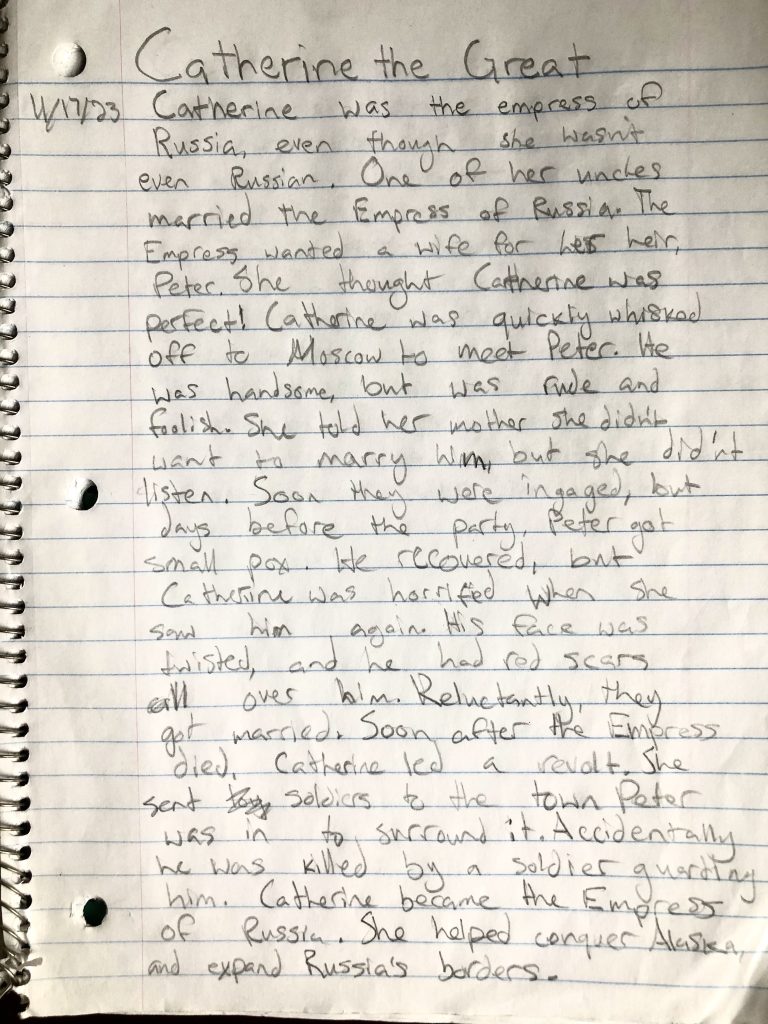 Catherine the Great
11/17/23 Catherine was the empress of
Russia, even though she wasn't
even Russian. One of her uncles
married the Empress of Russia. The
Empress wanted a wife for her heir,
Peter. She thought Catherine was
perfect! Catherine was quickly whisked
off to Moscow to meet Peter. He
was handsome, but was rude and
foolish. She told her mother she didn't
want to marry him, but she did'nt
listen. Soon they were ingaged, but
days before the party, Peter got
small pox. He recovered, but
Catherine was horrified when she
saw him again. His face was
twisted, and he had red scars
all over him. Reluctantly, they
got married. Soon after the Empress
died, Catherine led a revolt. She
sent soldiers to the town Peter
was in to surround it. Accidentally
he was killed by a soldier guarding
him. Catherine became the Empress
of Russia. She helped conquer Alaska,
and expand Russia's borders.